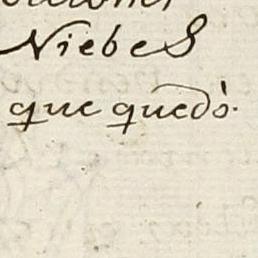 NiebeS
que quedò.